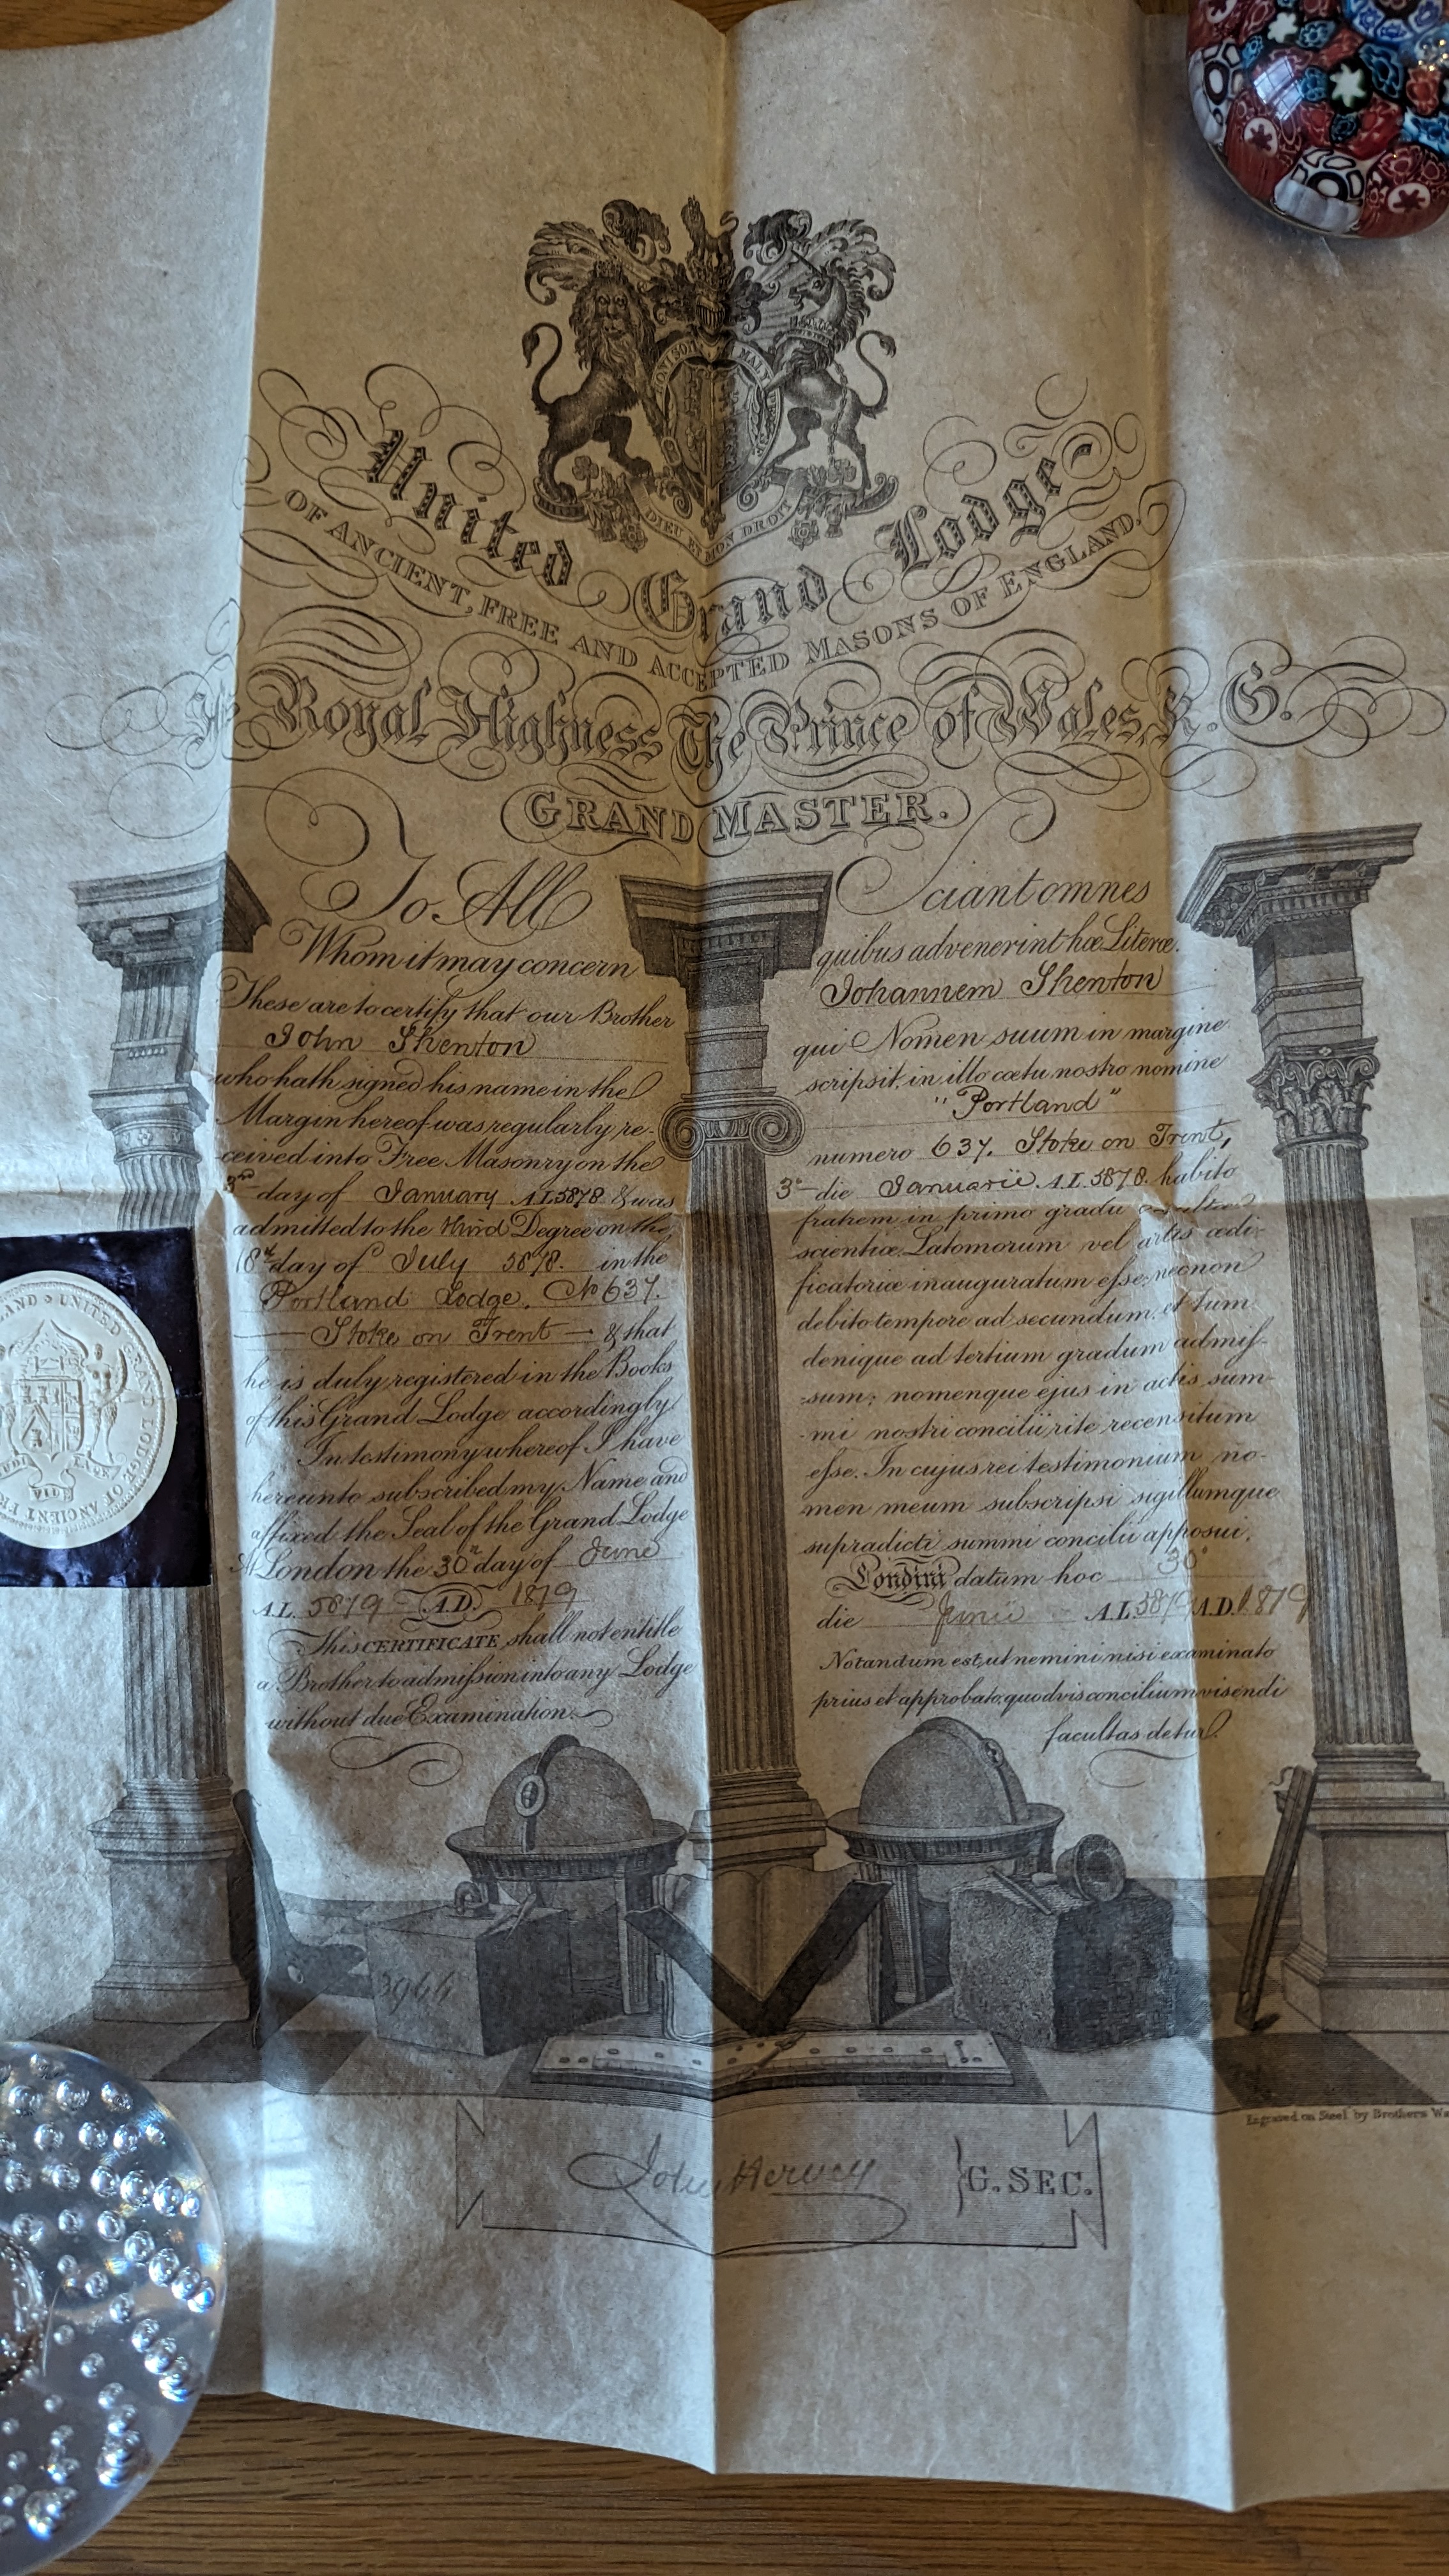 HONI SOIT MAL Y
DIEU ET MON DROIT
United Grand Lodge
OF ANCIENT, FREE AND ACCEPTED MASONS OF ENGLAND.
Royal Highness The Prince of Wales, K.G.
GRAND MASTER.
To All
Whom it may concern
These are to certify that our Brother
John Shenton
who hath signed his name in the
Margin hereof was regularly re-
ceived into Free Masonry on the
3rd day of January A.L. 5878 & was
admitted to the third Degree on the
18th day of July 5878. in the
Portland Lodge, No 637.
Stoke on Trent — & that
he is duly registered in the Books
of this Grand Lodge accordingly
In testimony whereof I have
hereunto subscribed my Name and
affixed the Seal of the Grand Lodge
At London the 30th day of June
A.L. 5879 A.D. 1879
This CERTIFICATE shall not entitle
a Brother to admission into any Lodge
without due Examination.
Sciant omnes
quibus advenerint hæ Literæ.
Johannem Shenton
qui Nomen suum in margine
scripsit, in illo cœtu nostro nomine
"Portland"
numero 637. Stoke on Trent,
3o die Januarii. A.L. 5878. habito
fratrem in primo gradu
scientiæ Latomorum vel artis ædi-
ficatoriæ inauguratum eſse, necnon
debito tempore ad secundum. et tum
denique ad tertium gradum admiſ-
-sum; nomenque ejus in actis sum-
-mi nostri concilii rite recensitum
eſse. In cujus rei testimonium no-
men meum subscripsi sigillumque
supradicti summi concilii apposui.
Londini datum hoc 30o
die Junii A.L. 5879 A.D. 1879
Notandum est, ut nemini nisi examinato
prius et approbato, quodvis concilium visendi
facultas detur.
AND UNITED GRAND LODGE OF ANCIENT FR
3966
Engraved on Steel by Brothers
John Hervey G. SEC.